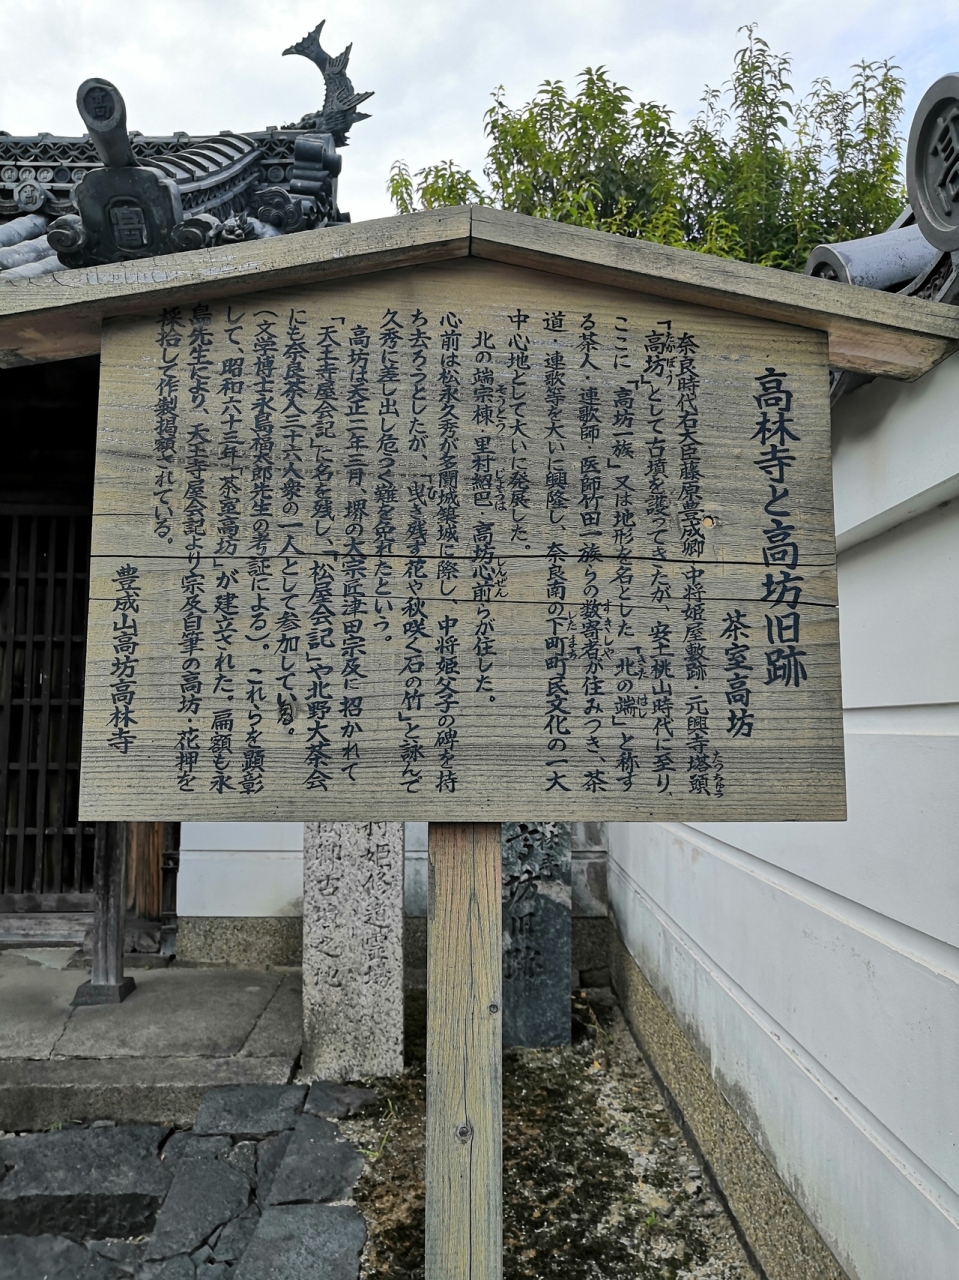 高林寺と高坊旧跡
茶室高坊
奈良時代右大臣藤原豊成卿・中将姫屋敷跡・元興寺塔頭
たっちゅう
「高坊」として古墳を護ってきたが、安土桃山時代に至り、
たかぼう
ここに「高坊一族」又は地形を名とした「北の端」と称す
きた はし
る茶人・連歌師・医師竹田一族らの数寄者が住みつき、茶
すきしゃ
道・連歌等を大いに興隆し、奈良南の下町町民文化の一大
したまち
中心地として大いに発展した。
北の端宗棟・里村紹巴・高坊心前らが住した。
そうとう じょうは しんぜん
心前は松永久秀が多聞城築城に際し、中将姫父子の碑を持
ち去ろうとしたが、「曳き残す花や秋咲く石の竹」と詠んで
ひ
久秀に差し出し危うく難を免れたという。
高坊は天正二年三月、堺の大宗匠津田宗及に招かれて
「天王寺屋会記」に名を残し、「松屋会記」や北野大茶会
にも奈良茶人三十六人衆の一人として参加している。
(文学博士永島福太郎先生の考証による)。これらを顕彰
して、昭和六十三年「茶室高坊」が建立された、扁額も永
島先生により、天王寺屋会記より宗及自筆の高坊・花押を
採拾して作製掲額されている。
豊成山高坊高林寺
姫修道霊場
卿古墳之地
坊旧跡
高
高
高